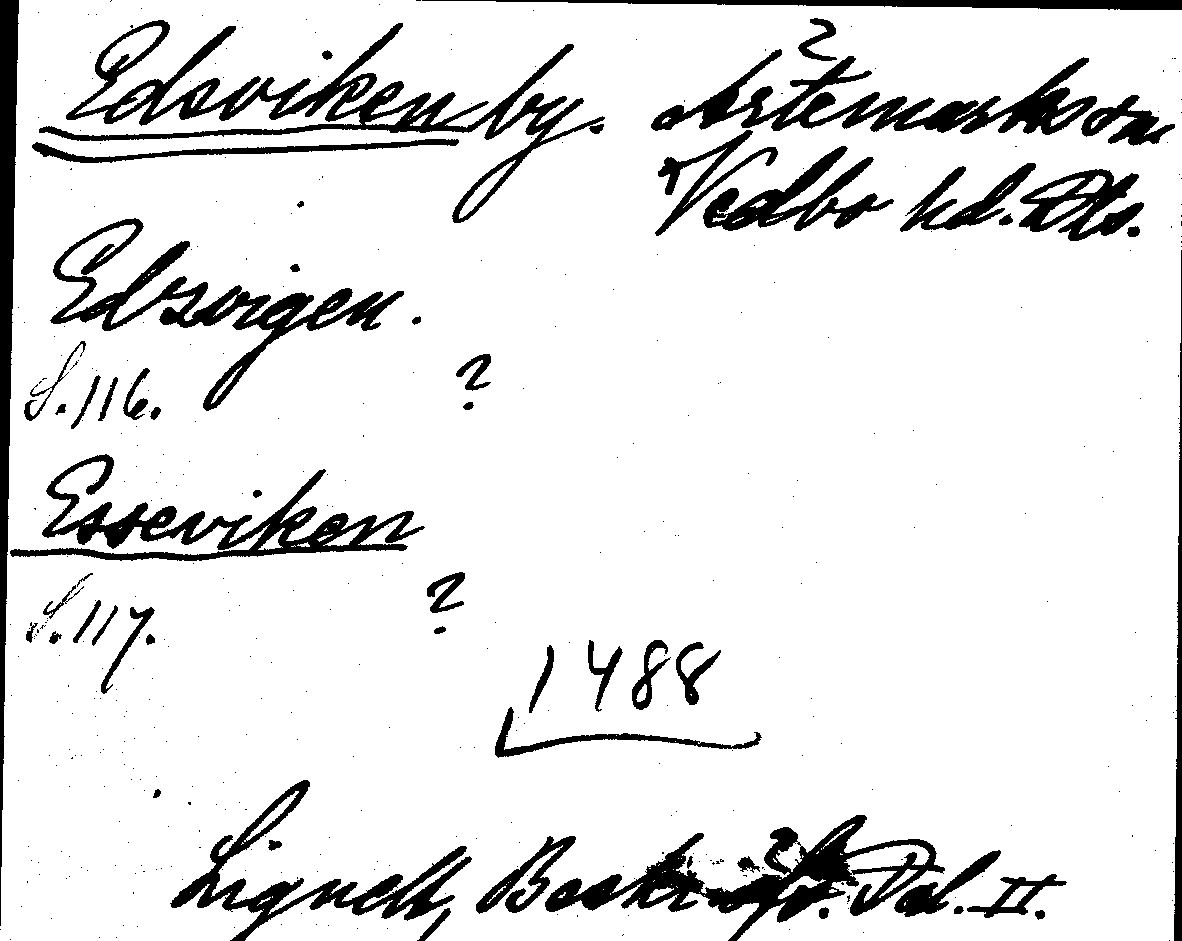 Edsviken by. Ärtemarks sn.
Vedbo hd. Dls.
Edzvigen.
S. 116. ?
Esseviken
S. 117. ?
1488
Lignell, Beskr. öfv. Dal. II.